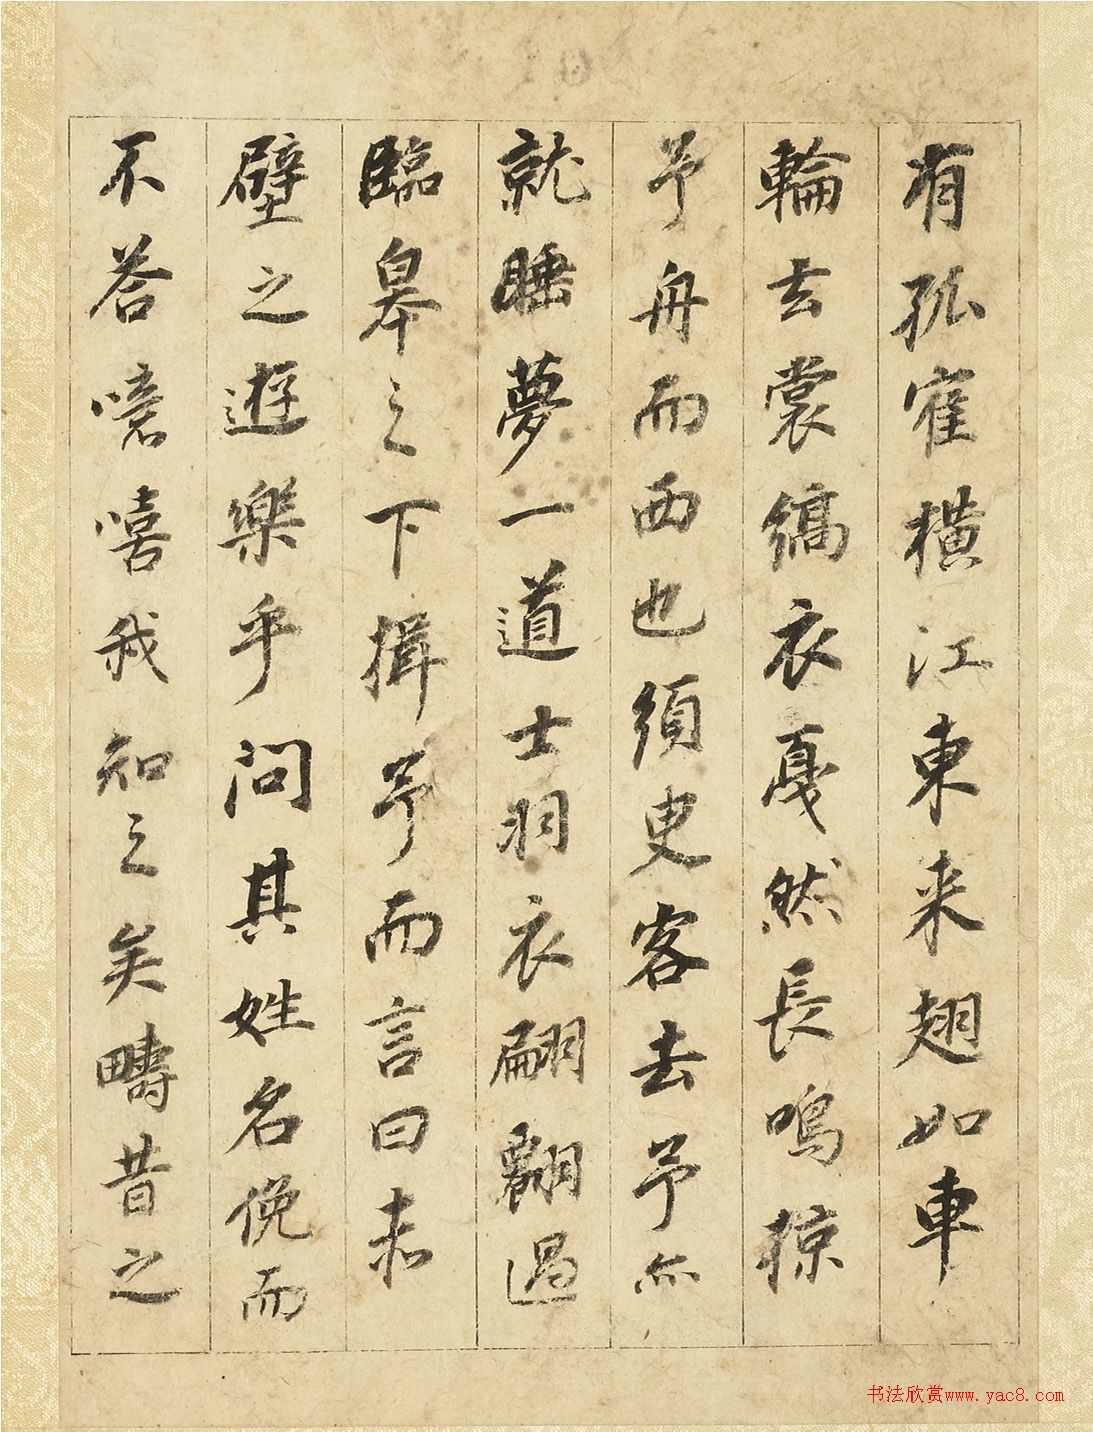 有孤寉橫江東来翅如車
輪玄裳縞衣戛然長鳴掠
予舟而西也須臾客去予亦
就睡夢一道士羽衣翩翻過
臨皋之下揖予而言曰赤
壁之遊樂乎問其姓名俛而
不荅噫嘻我知之矣疇昔之
书法欣赏www.yac8.com